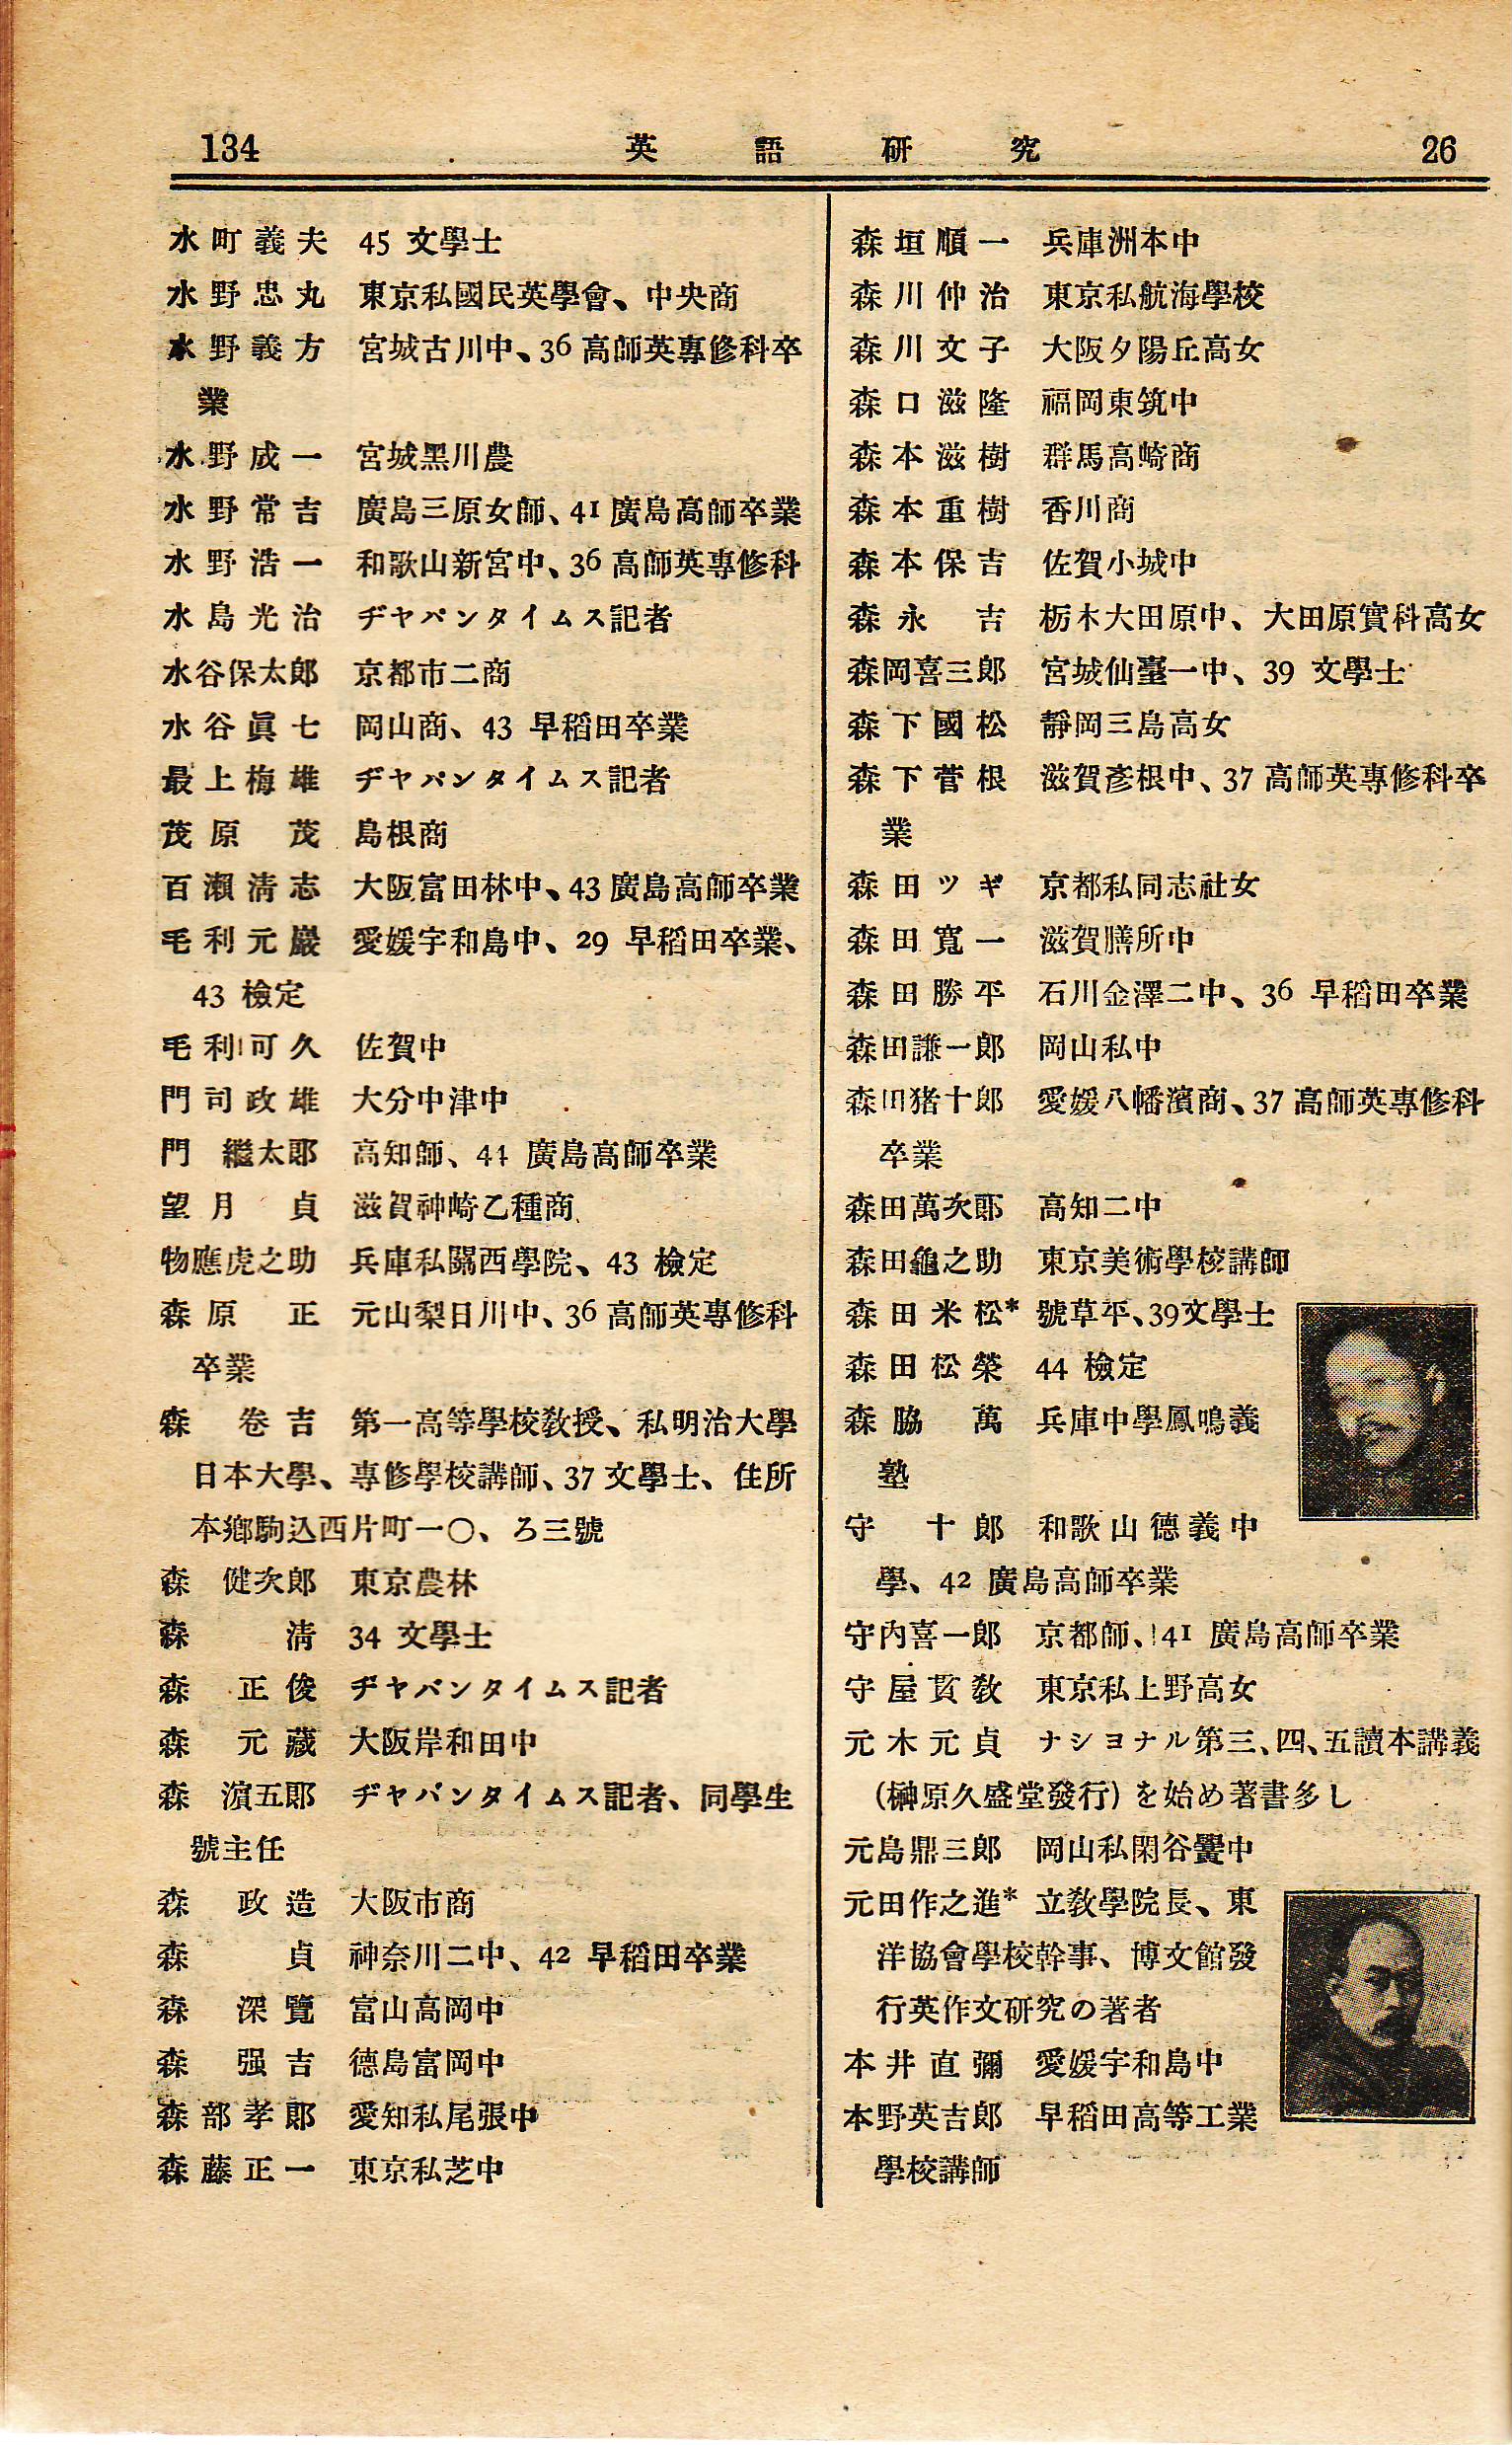 134 英語研究 26
水町義夫 45 文學士
水野忠丸 東京私國民英學會、中央商
水野義方 宮城古川中、36高師英專修科卒
業
水野成一 宮城黑川農
水野常吉 廣島三原女師、41廣島高師卒業
水野浩一 和歌山新宮中、36高師英專修科
水島光治 ヂヤパンタイムス記者
水谷保太郎 京都市二商
水谷眞七 岡山商、43 早稻田卒業
最上梅雄 ヂヤパンタイムス記者
茂原茂 島根商
百瀨淸志 大阪富田林中、43廣島高師卒業
毛利元巖 愛媛宇和島中、29 早稻田卒業、
43 檢定
毛利可久 佐賀中
門司政雄 大分中津中
門繼太郞 高知師、44 廣島高師卒業
望月貞 滋賀神崎乙種商
物應虎之助 兵庫私關西學院、43 檢定
森原正 元山梨日川中、36高師英專修科
卒業
森卷吉 第一高等學校敎授、私明治大學
日本大學、專修學校講師、37文學士、住所
本鄕駒込西片町一〇、ろ三號
森健次郞 東京農林
森淸 34 文學士
森正俊 ヂヤパンタイムス記者
森元藏 大阪岸和田中
森濱五郞 ヂヤパンタイムス記者、同學生
號主任
森政造 大阪市商
森貞 神奈川二中、42 早稻田卒業
森深覽 富山高岡中
森强吉 德島富岡中
森部孝郞 愛知私尾張中
森藤正一 東京私芝中
森垣順一 兵庫洲本中
森川仲治 東京私航海學校
森川文子 大阪夕陽丘高女
森口滋隆 福岡東筑中
森本滋樹 群馬高崎商
森本重樹 香川商
森本保吉 佐賀小城中
森永吉 栃木大田原中、大田原實科高女
森岡喜三郞 宮城仙臺一中、39 文學士
森下國松 靜岡三島高女
森下菅根 滋賀彥根中、37高師英專修科卒
業
森田ツギ 京都私同志社女
森田寬一 滋賀膳所中
森田勝平 石川金澤二中、36 早稻田卒業
森田謙一郞 岡山私中
森田猪十郞 愛媛八幡濱商、37高師英專修科
卒業
森田萬次郞 高知二中
森田龜之助 東京美術學校講師
森田米松* 號草平、39文學士
森田松榮 44 檢定
森脇萬 兵庫中學鳳鳴義
塾
守十郞 和歌山德義中
學、42 廣島高師卒業
守內喜一郞 京都師、41 廣島高師卒業
守屋貫敎 東京私上野高女
元木元貞 ナシヨナル第三、四、五讀本講義
(榊原久盛堂發行)を始め著書多し
元島鼎三郞 岡山私閑谷黌中
元田作之進* 立敎學院長、東
洋協會學校幹事、博文館發
行英作文硏究の著者
本井直彌 愛媛宇和島中
本野英吉郞 早稻田高等工業
學校講師